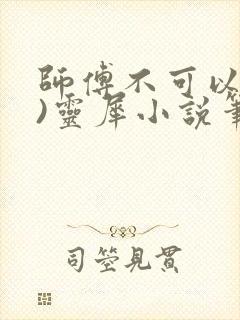 師傅不可以
)靈犀小說筆
司箜見貫